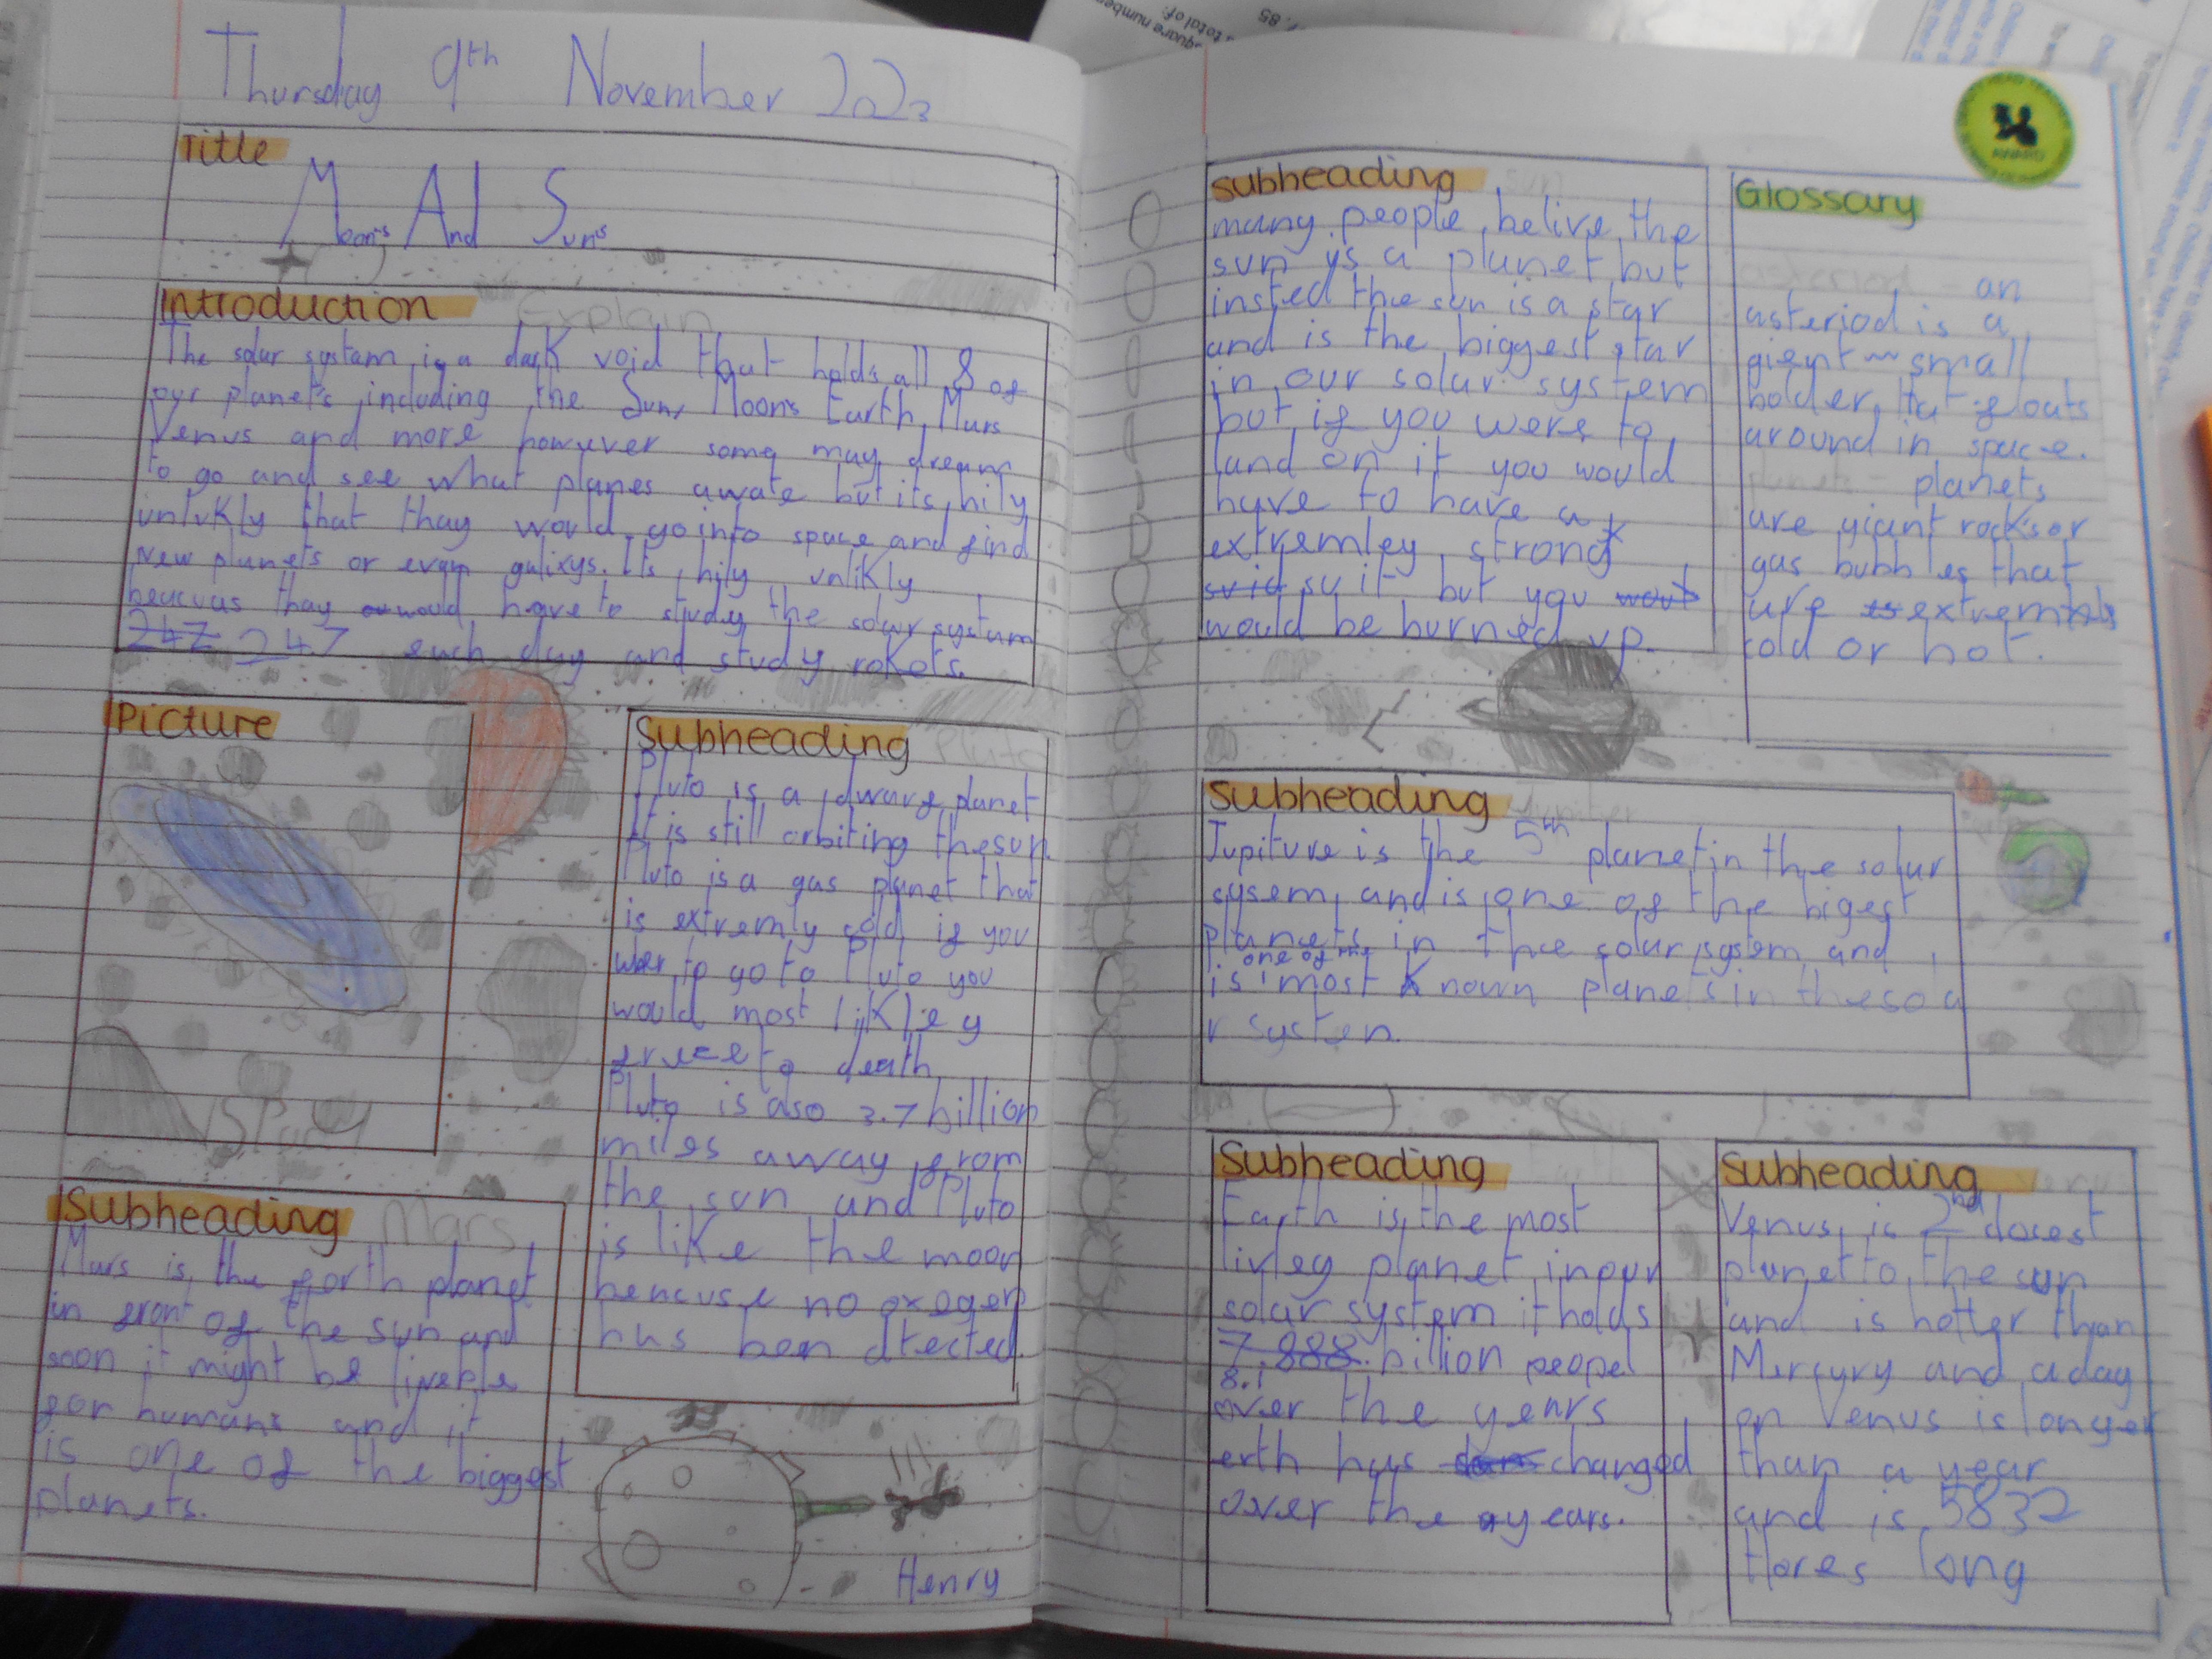 Thursday 9th November 2023
Title
Moon's And Sun's
Introduction
Explain
The solar systam is a dark void that holds all 8 of
our planet's including the Sun, Moon's Earth, Mars
Venus and more however some may dream
to go and see what planes awate but its hily
unlikly that thay would go into space and find
new planets or evan galixys. It's hily unlikly
beucuas thay would have to study the solar systum
247 247 each day and study rokets.
Picture
Space
Subheading
Pluto
Pluto is a dwarf planet
It is still orbiting the sun.
Pluto is a gas planet that
is extremly cold if you
wher to go to Pluto you
would most likley
freese to death
Pluto is also 3.7 billion
miles away from
the sun and Pluto
is like the moon
because no oxegen
has been dtected.
Subheading
Mars
Mars is the forth planet
in front of the sun and
soon it might be liveble
for humans and it
is one of the biggest
planets.
Henry
Subheading
sun
many people belive the
sun is a planet but
insted the sun is a star
and is the biggest star
in our solar system
but if you were to
land on it you would
have to have a
extremley strong
suit but you
would be burned up.
Glossary
an
asteriod is a
gient small
bolder, that floats
around in space.
planets
planets
are giant rocks or
gas bubbles that
are extremely
cold or hot.
AWARD
Subheading
Jupiter
Jupiture is the 5th planet in the solar
sysem, and is one of the bigest
planets in the solar system and
one of the
is most known planets in the sola
r systen.
Subheading
Earth
Earth is the most
livley planet in our
solar system it holds
7.888 billion peopel
8.1
over the years
erth has changed
over the years.
Subheading
Venus is 2nd closest
planet to the sun
and is hotter than
Mercury and a day
on Venus is longer
than a year
and is 5832
Hores long
square number
total of:
85